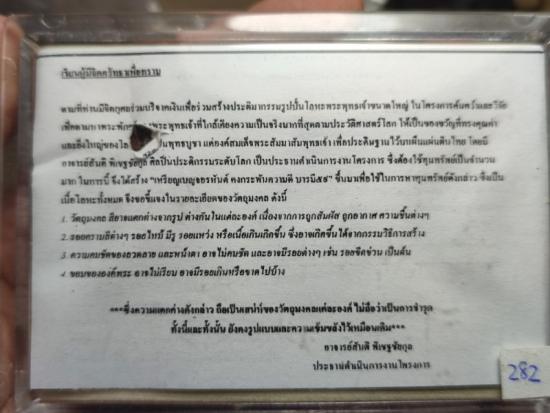 เรียนผู้มีจิตศรัทธาเพื่อทราบ
ตามที่ท่านมีจิตกุศลร่วมบริจาคเงินเพื่อร่วมสร้างประติมากรรมรูปปั้นโลหะพระพุทธเจ้าขนาดใหญ่ ในโครงการค้นคว้าและวิจัย
เพื่อตามหาพระพักตร์ พระพุทธเจ้าที่ใกล้เคียงความเป็นจริงมากที่สุดตามประวัติศาสตร์โลก ให้เป็นของขวัญที่ทรงคุณค่า
และยิ่งใหญ่ของโล เป็นพุทธบูชา แด่องค์สมเด็จพระสัมมาสัมพุทธเจ้า เพื่อประดิษฐาน ไว้บนผืนแผ่นดินไทย โดยมี
อาจารย์สันติ พิเชฐชัยกุล ศิลปินประติกรรมระดับโลก เป็นประธานดำเนินการงานโครงการ ซึ่งต้องใช้ทุนทรัพย์เป็นจำนวน
มาก ในการนี้ จึงได้สร้าง "เหรียญเบญจรหันต์ คงกระพันความดี บารมี๕๙" ขึ้นมาเพื่อใช้ในการหาทุนทรัพย์ดังกล่าว ซึ่งเป็น
เนื้อโลหะทั้งหมด จึงขอชี้แจงในรายละเอียดของวัตถุมงคล ดังนี้
1. วัตถุมงคล สีอาจแตกต่างจากรูป ต่างกันในแต่ละองค์ เนื่องจากการถูกสัมผัส ถูกอากาศ ความชื้นต่างๆ
2. รอยคราบสีต่างๆ รอยไหม้ มีรู รอยแหว่ง หรือเนื้อเกินเกิดขึ้น ซึ่งอาจเกิดขึ้นได้จากกรรมวิธีการสร้าง
3. ความคมชัดของลวดลาย และหน้าตา อาจไม่คมชัด และอาจมีรอยต่างๆ เช่น รอยขีดข่วน เป็นต้น
4. ขอบขององค์พระ อาจไม่เรียบ อาจมีรอยเกินหรือขาดไปบ้าง
***ซึ่งความแตกต่างดังกล่าว ถือเป็นเสน่ห์ของวัตถุมงคลแต่ละองค์ ไม่ถือว่าเป็นการชำรุด
ทั้งนี้และทั้งนั้น ยังคงรูปแบบและความเข้มขลังไว้เหมือนเดิม***
อาจารย์สันติ พิเชฐชัยกุล
ประธานดำเนินการงานโครงการ
282